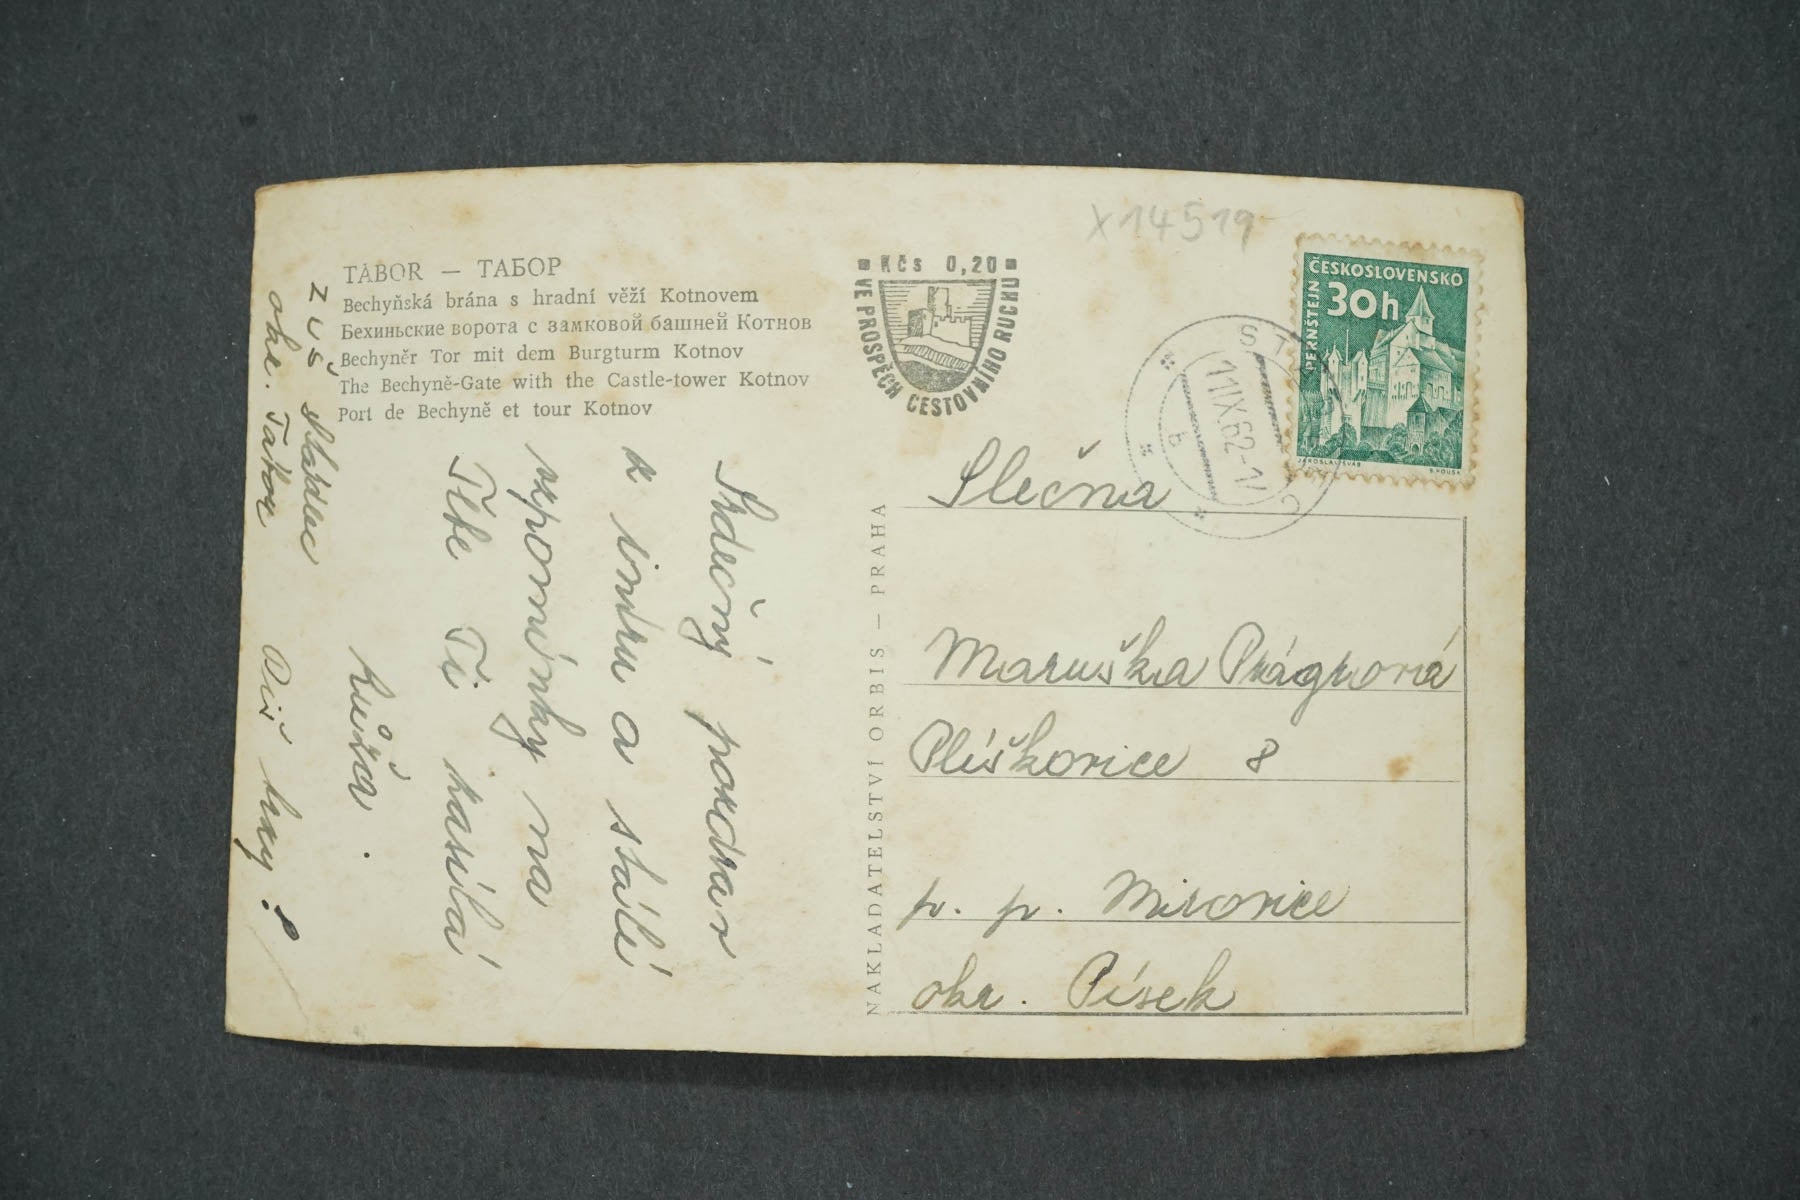 X14519
TÁBOR — ТАБОР
Bechyňská brána s hradní věží Kotnovem
Бехиньские ворота с замковой башней Котнов
Bechyněr Tor mit dem Burgturm Kotnov
The Bechyně-Gate with the Castle-tower Kotnov
Port de Bechyně et tour Kotnov
Kčs 0,20
VE PROSPĚCH CESTOVNÍHO RUCHU
ČESKOSLOVENSKO
30h
PERNŠTEJN
JAROSLAV ŠVÁB
B. HOUSA
11IX.62-1
b
NAKLADATELSTVÍ ORBIS — PRAHA
Srdečný pozdrav
z
a stálé
vzpomínky na
Tebe Ti zasílá
Růža.
ZUŠ Sládec
okr. Tábor Piš brzy!
Slečna
Maruška Prágrová
Plíškovice 8
p. p. Mirovice
okr. Písek